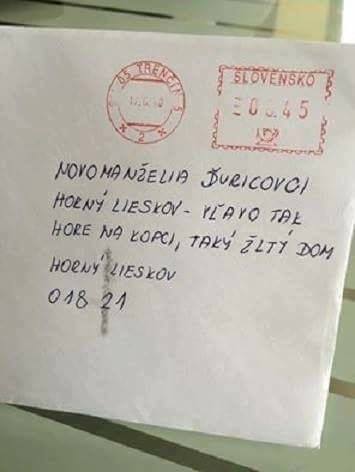 05 TRENČÍN 5
2
SLOVENSKO
0045
NOVOMANŽELIA ĎURICOVCI
HORNÝ LIESKOV - VĽAVO TAK
HORE NA KOPCI, TAKÝ ŽLTÝ DOM
HORNÝ LIESKOV
018 21